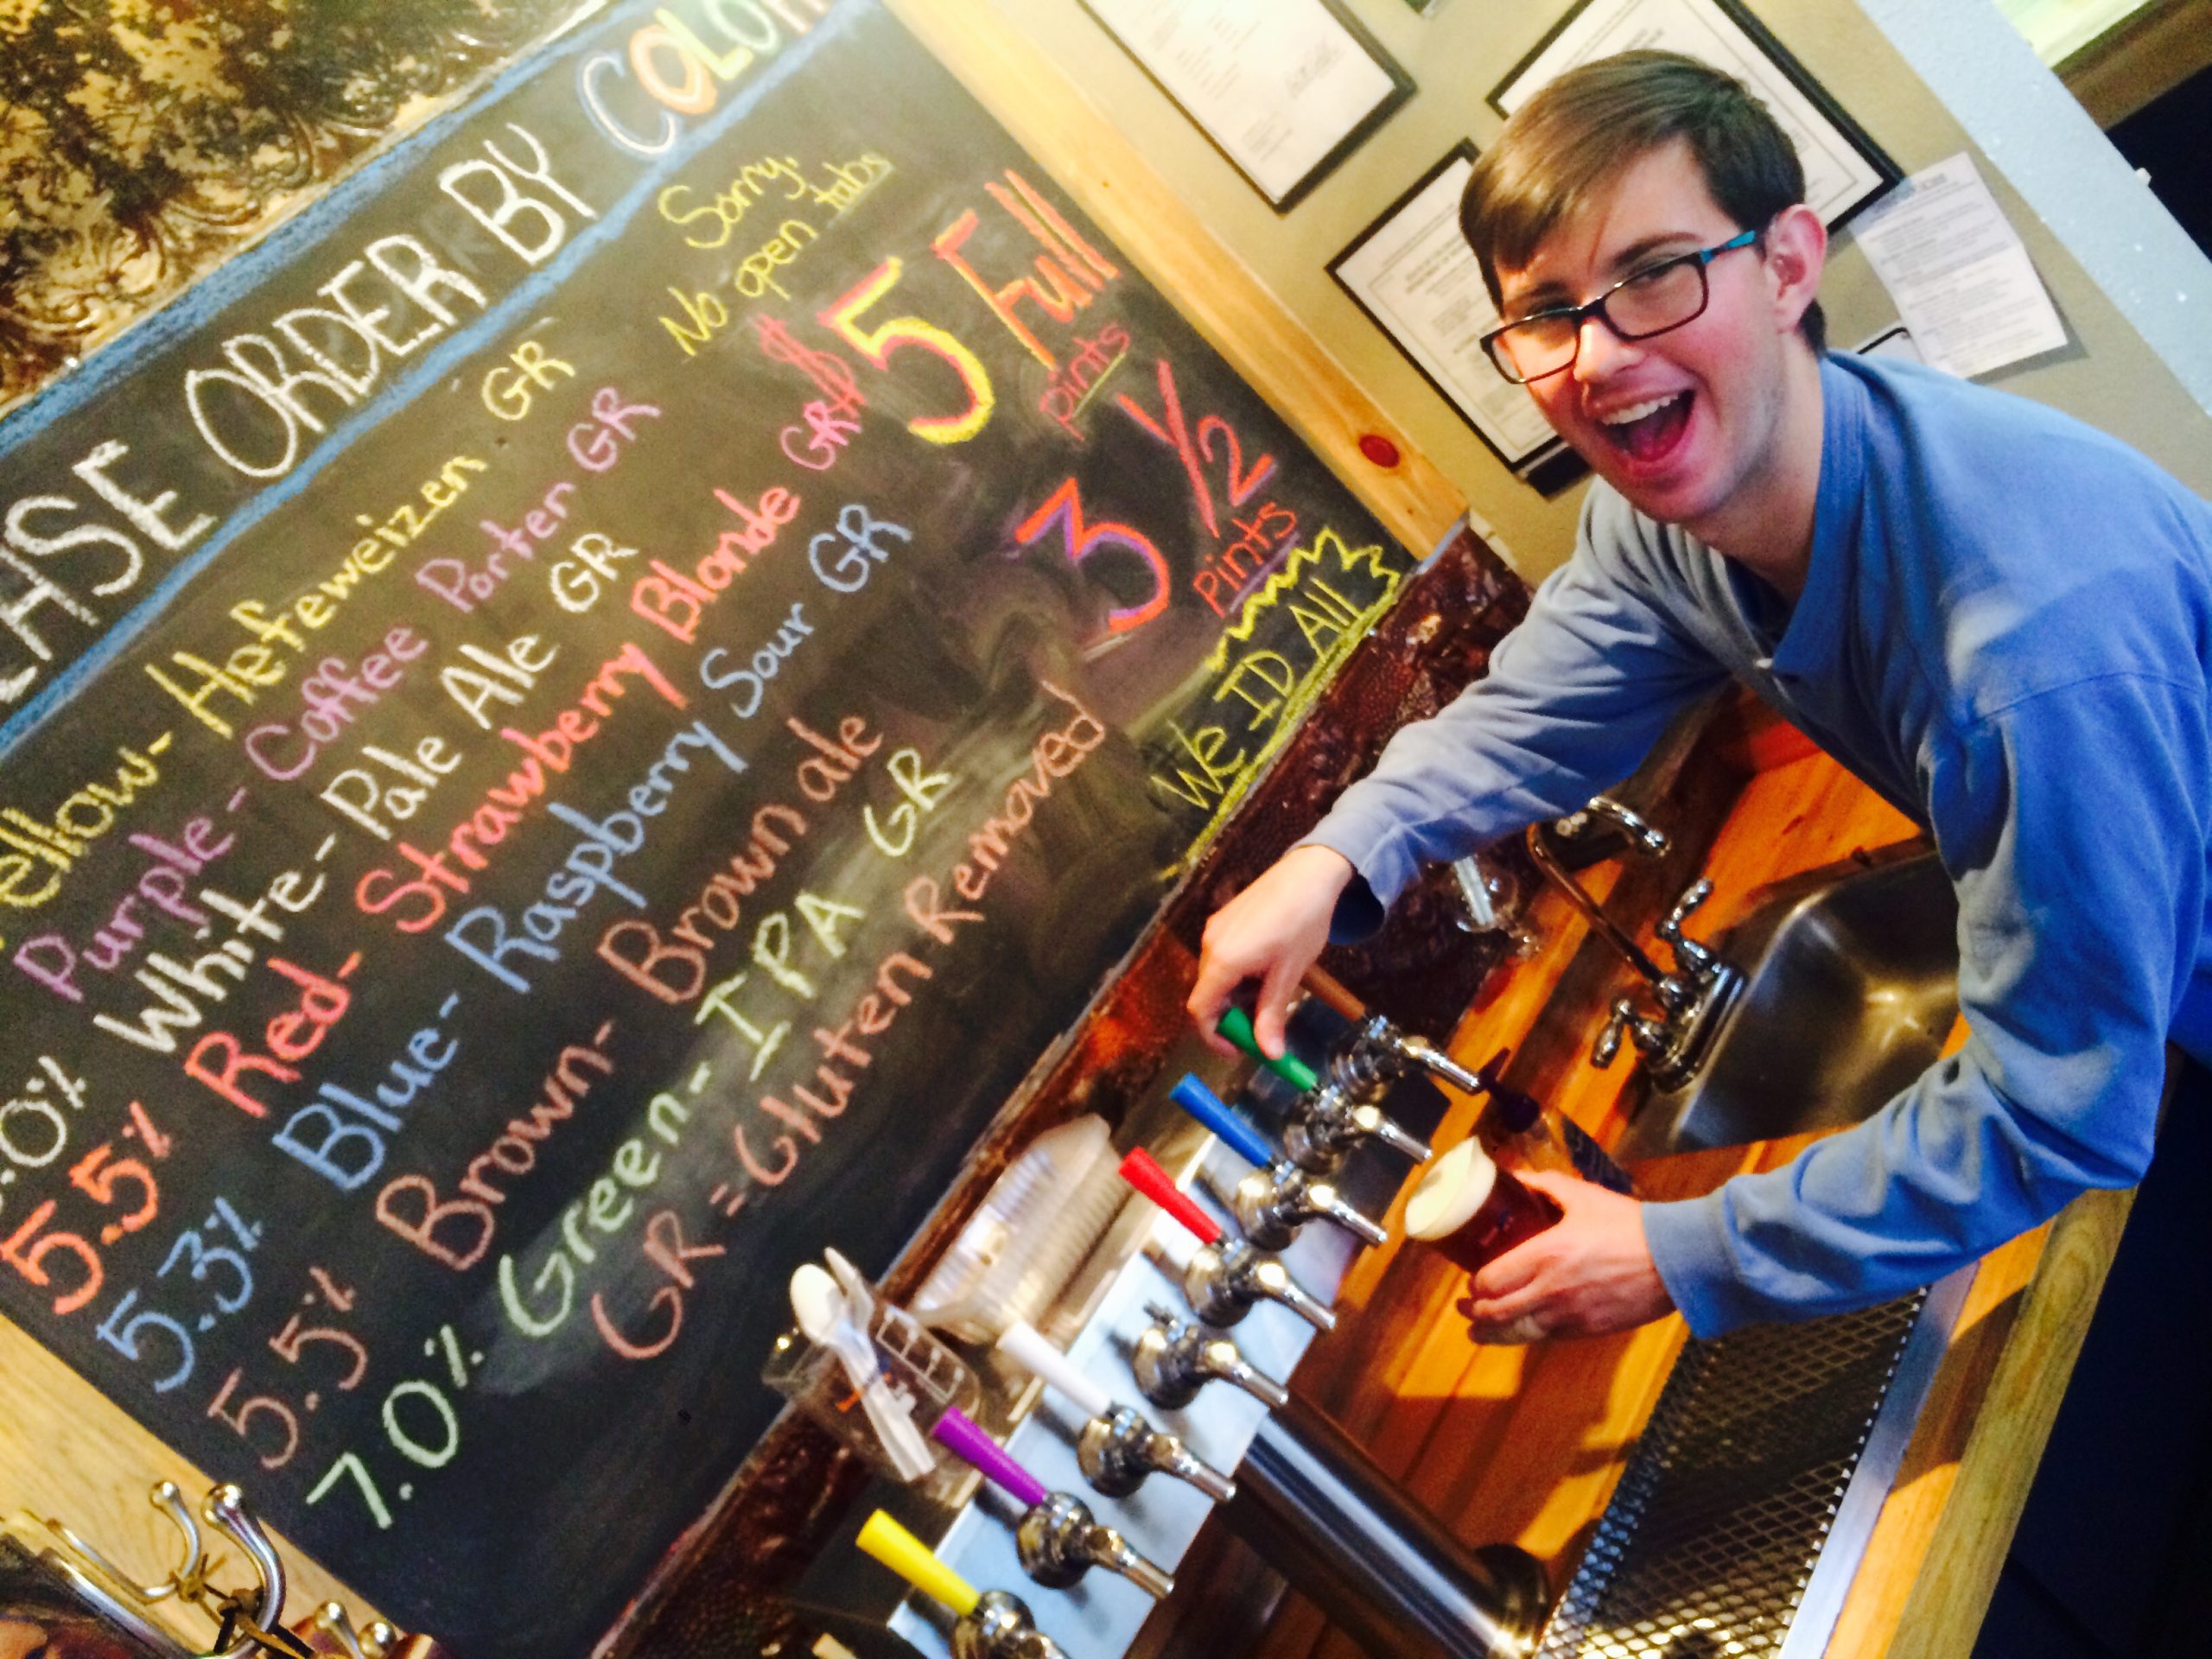 EASE ORDER BY COLOR
Sorry,
No open tabs
ellow- Hefeweizen GR
Purple- Coffee Porter GR
.0% White- Pale Ale GR
5.5% Red- Strawberry Blonde GR
5.3% Blue- Raspberry Sour GR
5.5% Brown- Brown ale
7.0% Green- IPA GR
GR = Gluten Removed
$5 Full
pints
3 1/2
Pints
We ID All